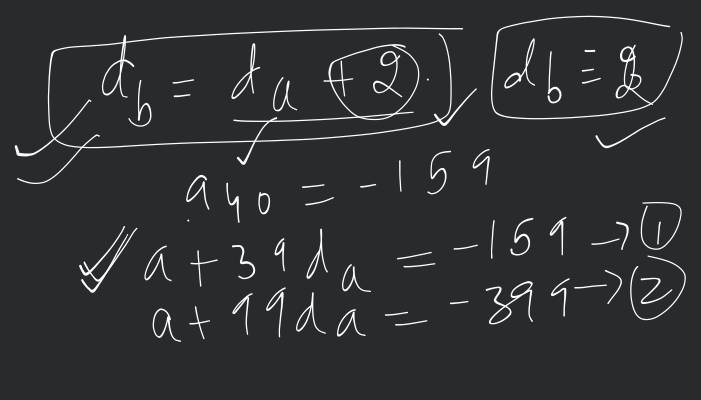 d_b = d_a + 2.
a_40 = -159
a + 39d_a = -159 → ①
a + 99d_a = -399 → ②